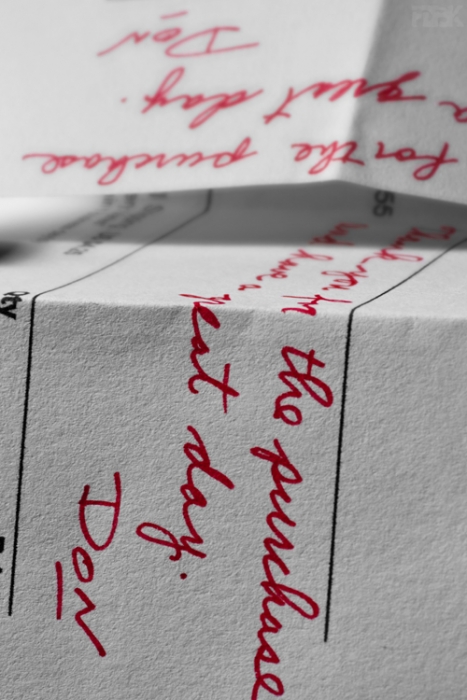 for the purchase
a great day.
Don
55
Thank you for the purchase
have a great day.
Don